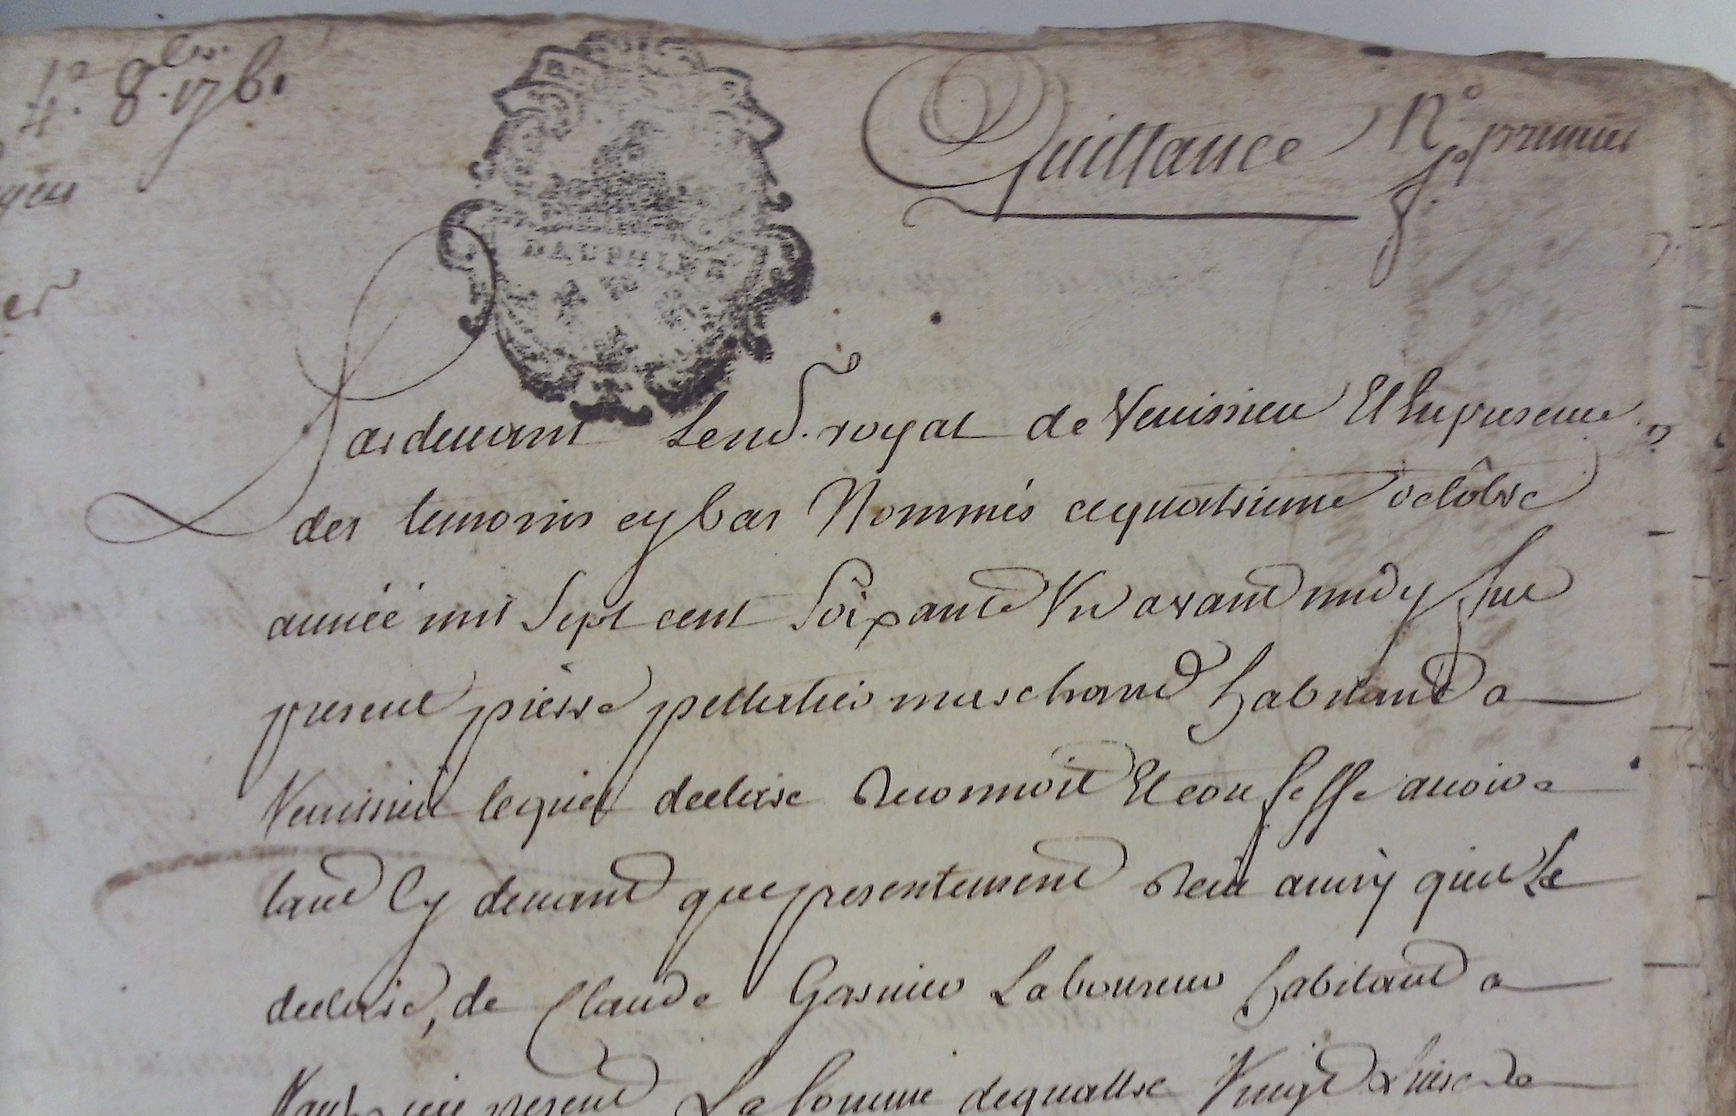 4e 8bre 1761
Quittance
No premier
fo
DAUPHINE
Pardevant Le nre royal de Venissieu Et En presence
des temoins cy bas Nommés ce quatrieme octobre
année mil Sept cent Soixante Un avant midy fut
present pierre pelletier marchand habitant a
Venissieu lequel declare Reconnoit Et confesse avoir
tant Cy devant que presentement Reçu ainsy qu'il Le
declare, de Claude Garnier Laboureur habitant a
present La somme de quattre Vingt Livres